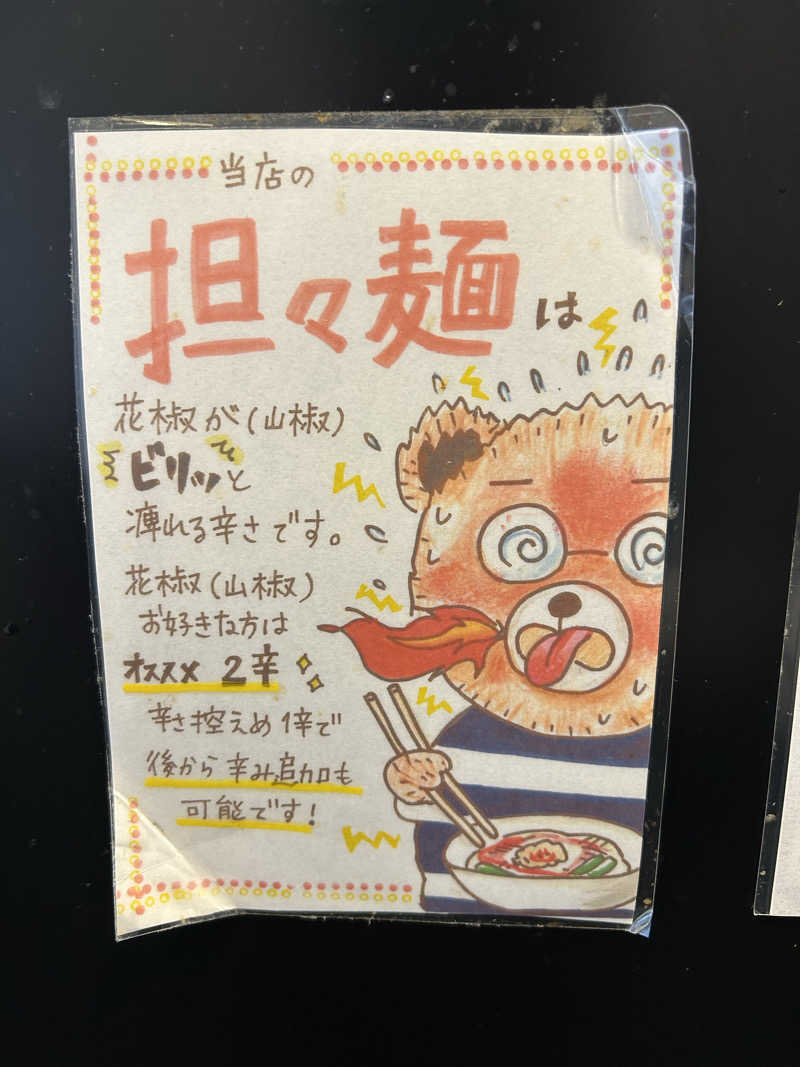 当店の
担々麺は
花椒が(山椒)
ビリッと
痺れる辛さです。
花椒(山椒)
お好きな方は
オススメ 2辛
辛さ控えめ 1辛で
後から辛み追加も
可能です!